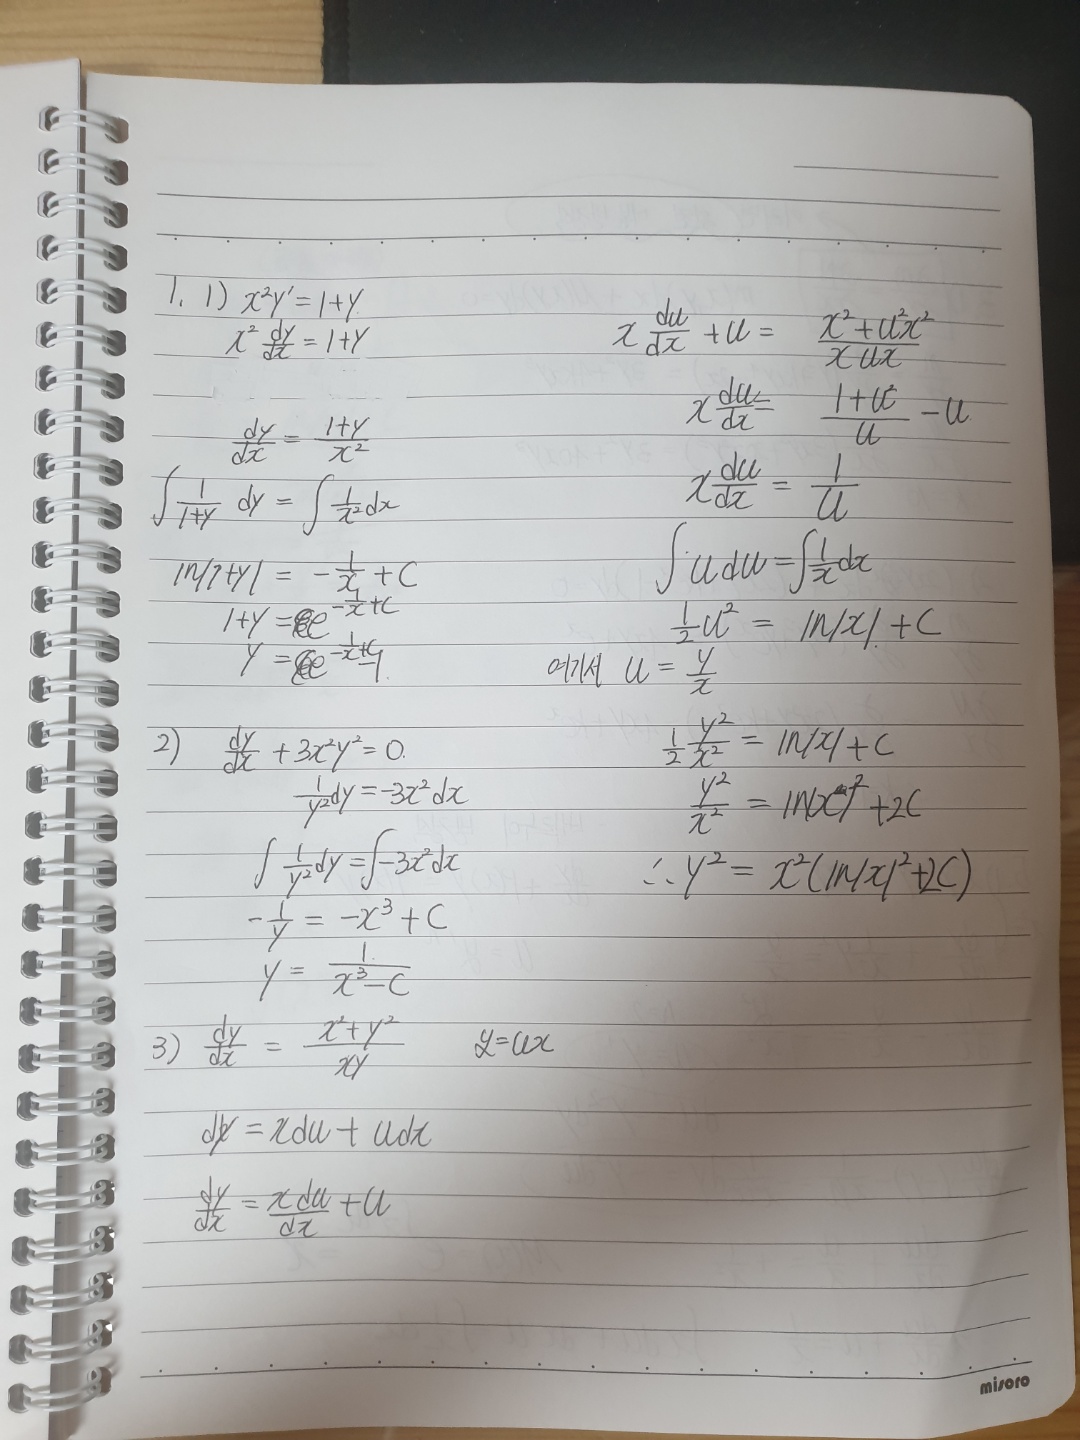 1. 1) x²y' = 1+y
x² dy/dx = 1+y
dy/dx = (1+y)/x²
∫ 1/(1+y) dy = ∫ 1/x² dx
ln|1+y| = -1/x + C
1+y = e^(-1/x+C)
y = e^(-1/x+C) -1
2) dy/dx + 3x²y² = 0.
1/y² dy = -3x² dx
∫ 1/y² dy = ∫ -3x² dx
-1/y = -x³ + C
y = 1/(x³-C)
3) dy/dx = (x²+y²)/xy y=ux
dy = xdu + udx
dy/dx = xdu/dx + u
x du/dx + u = (x²+u²x²)/(x ux)
x du/dx = (1+u²)/u - u
x du/dx = 1/u
∫ u du = ∫ 1/x dx
1/2 u² = ln|x| + C
여기서 u = y/x
1/2 y²/x² = ln|x| + C
y²/x² = ln|x|² + 2C
∴ y² = x²(ln|x|²+2C)
misoro